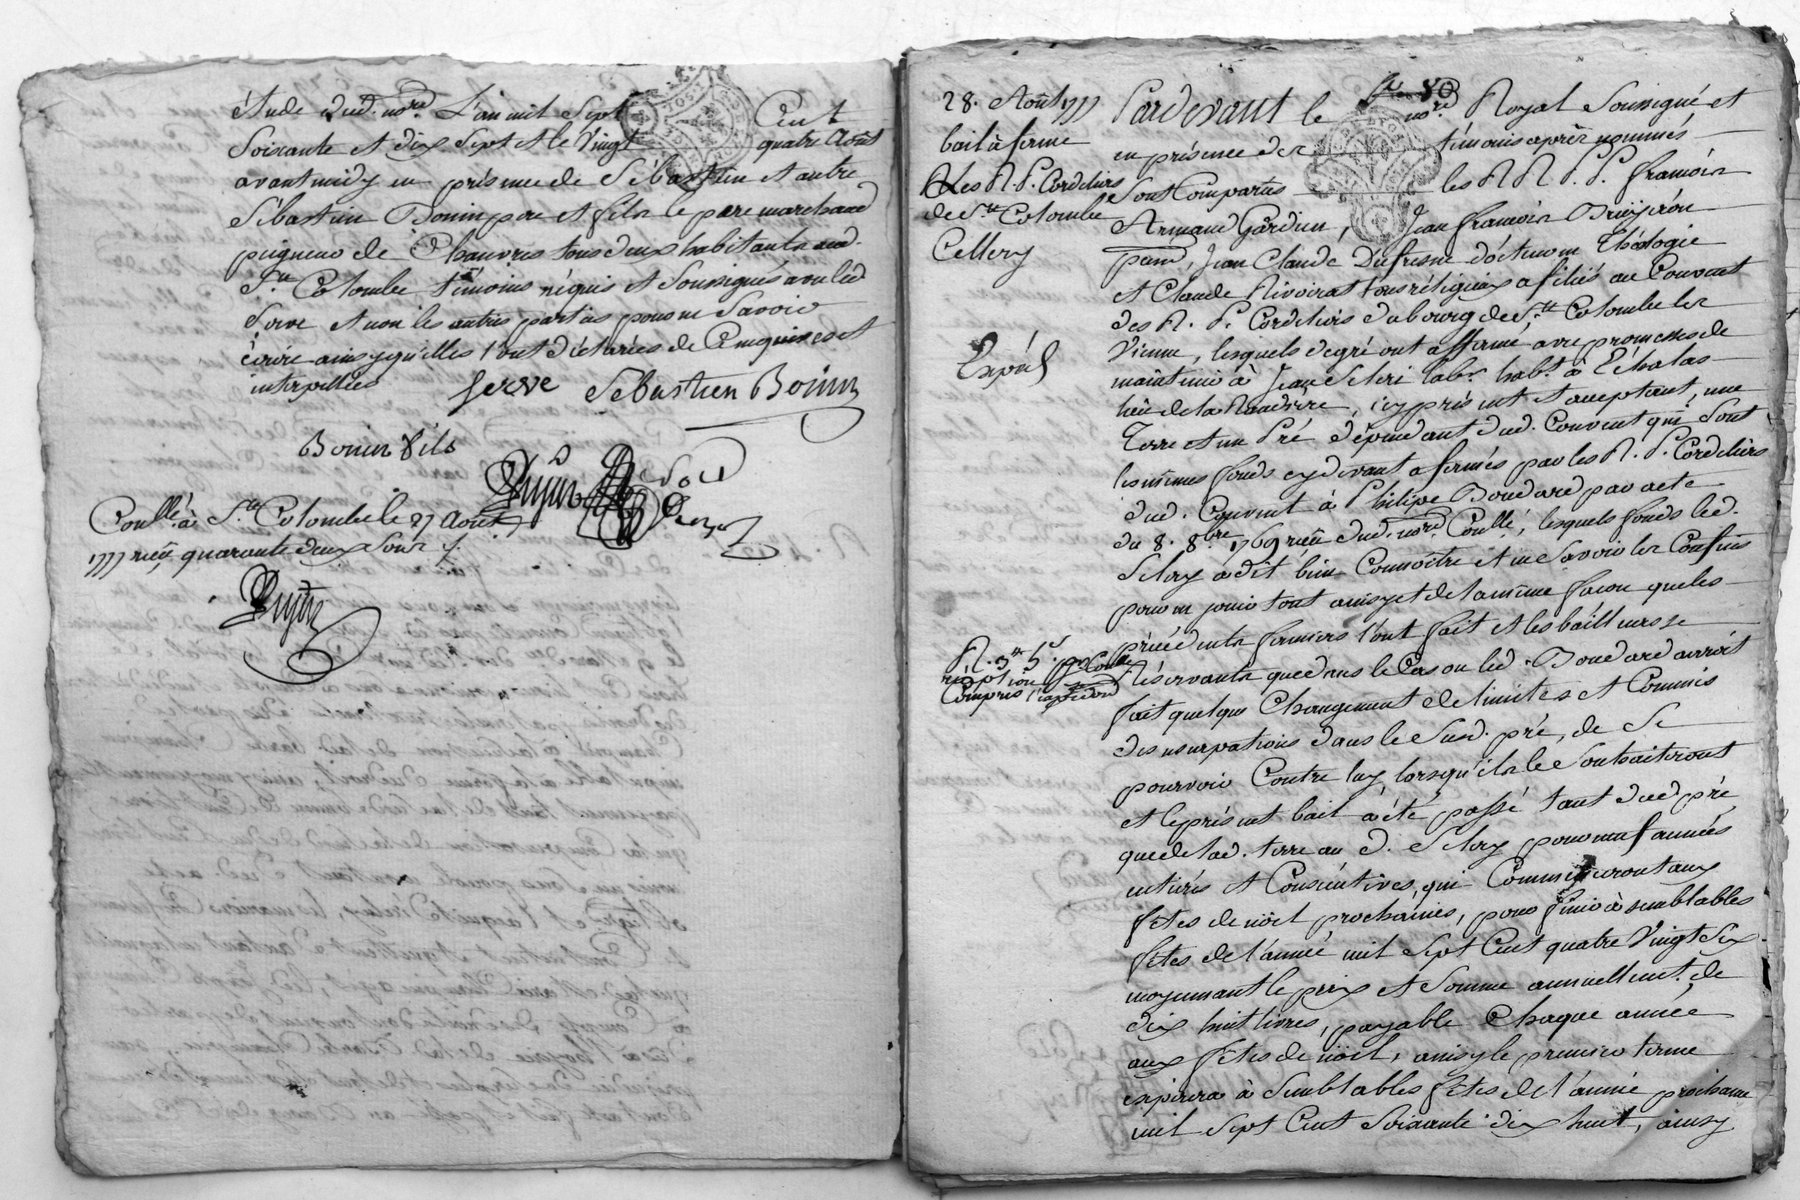 étude dud. no.re L'an mil Sept Cent
Soixante et dix Sept et le Vingt quatre Août
avant midy en présence de Sébastien et autre
Sébastien Bonin pere et fils le pere marchand
peigneur de Chanvres tous deux habitants aud.
S.te Colombe témoins requis et Soussignés avec led
Serve et non les autres parties pour ne Savoir
écrire ainsy qu'elles l'ont déclarées de ce enquises et
interpellées
Serve Sébastien Bonin
Bonin Fils
Conllé à S.te Colombe le 27 Août
1777 reçu quarante deux Sous
28. Août 1777
bail à ferme
Les R. P. Cordeliers
de S.te Colombe
Cellery
Expéd
R. 3.lt 5.s pr Conlle
Compris l'expedon
80
Pardevant le no.re Royal Soussigné et
en présence des témoins après nommés
Sont Comparus les R R. P. P. françois
Armand Gardien, Jean françois Bruÿeron
Jean Claude Dufresne docteur en Théologie
et Claude Rivoirat tous réligieux afiliés au Couvent
des R. P. Cordeliers du bourg de S.te Colombe les
Vienne, lesquels de gré ont affermé avec promesses de
maintenir à Jean Seleri lab.r hab.t à Echalas
lieu de la Rodière, icy présent et acceptant, une
Terre et un Pré dépendant dud. Couvent qui Sont
les mêmes fonds cy devant afermés par les R. P. Cordeliers
dud. Couvent à Philipe Boudard par acte
du 8. 8.bre 1769 reçu dud. no.re Conllé, lesquels fonds led.
Selery à dit bien Connoître et en Savoir les Confins
pour en jouir tout ainsy et de la même façon que les
précédents fermiers l'ont fait et les bailleurs se
réservants que dans le Cas ou led. Boudard auroit
fait quelque Changement de limites et Commis
des usurpations dans le Susd. pré, de Se
pourvoir Contre luy lorsqu'ils le Souhaiteront
et le présent bail à été passé tant dud pré
que de lad. terre au d. Selery pour neuf années
entières et Consécutives, qui Commenceront aux
fêtes de noël prochaines, pour finir à semblables
fêtes de l'année mil Sept Cent quatre Vingt Six
moyennant le prix et Somme annuellement de
dix huit livres, payable Chaque année
aux fêtes de noël, ainsy le premier terme
expirera à Semblables fêtes de l'année prochaine
mil Sept Cent Soixante dix huit, ainsy